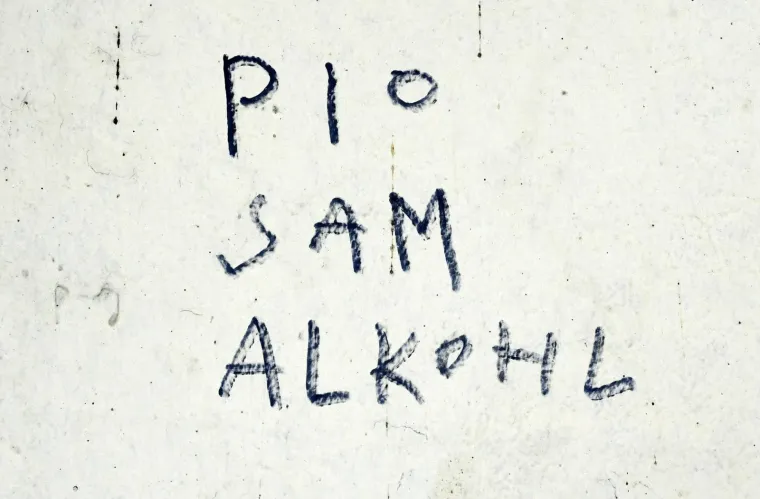 PIO
SAM
ALKOHL